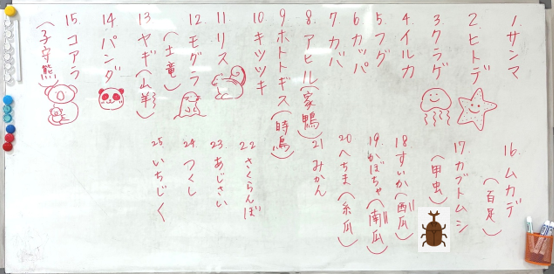 1. サンマ
2. ヒトデ
3. クラゲ
4. イルカ
5. フグ
6. カッパ
7. カバ
8. アヒル(家鴨)
9. ホトトギス(時鳥)
10 キツツキ
11 リス
12 モグラ
(土竜)
13 ヤギ(山羊)
14 パンダ
15. コアラ
(子守熊)
16. ムカデ
(百足)
17. カブトムシ
(甲虫)
18 すいか(西瓜)
19 かぼちゃ(南瓜)
20 へちま(糸瓜)
21 みかん
22 さくらんぼ
23 あじさい
24 つくし
25 いちじく